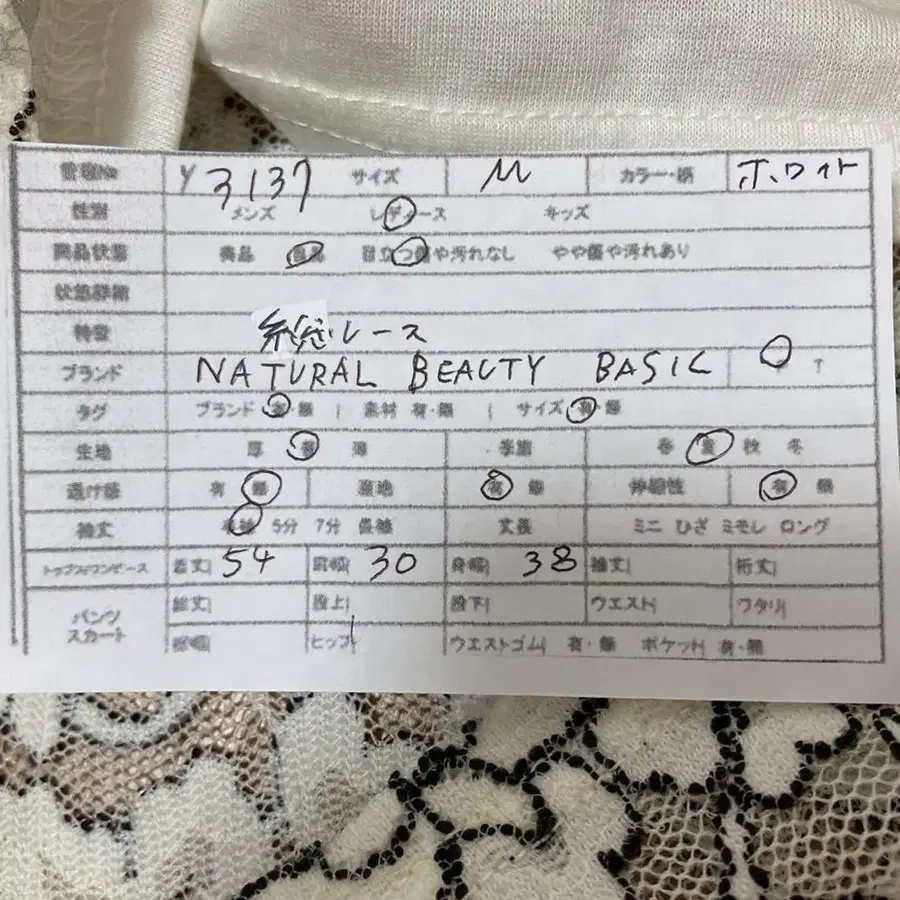 管理No Y 3137 サイズ M カラー・柄 ホワイト
性別 メンズ レディース キッズ
商品状態 美品 目立つ傷や汚れなし やや傷や汚れあり
状態詳細
特徴 総レース
ブランド NATURAL BEAUTY BASIC
タグ ブランド 有・無 | 素材 有・無 | サイズ 有・無
生地 厚 普 薄 季節 春 夏 秋 冬
透け感 有 無 裏地 有 無 伸縮性 有 無
袖丈 5分 7分 長袖 丈長 ミニ ひざ ミモレ ロング
トップス/ワンピース 着丈| 54 肩幅| 30 身幅| 38 袖丈| 裄丈|
パンツ スカート 総丈| 股上| 股下| ウエスト| ワタリ|
裾幅| ヒップ| ウエストゴム| 有・無 ポケット| 有・無